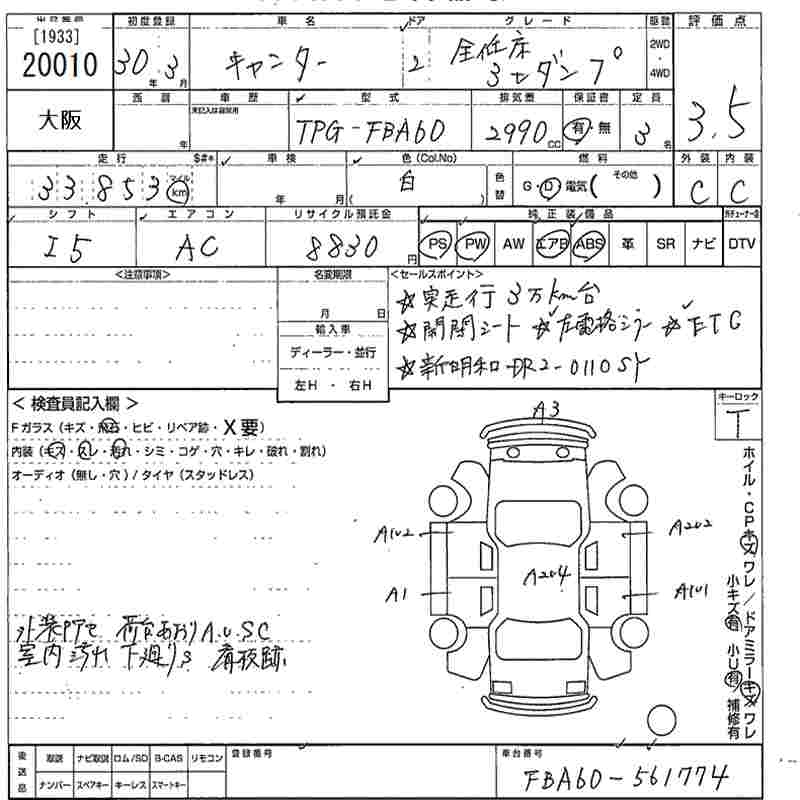 [1933]
20010
大阪
初度登録
30年 3月
車名
キャンター
ドア
2
グレード
全低床
3tダンプ
駆動
2WD
4WD
評価点
3.5
西暦
年
車歴
未記入は自家用
型式
TPG-FBA60
排気量
2990cc
保証書
有・無
定員
3名
走行
33,853
マイル
km
$#*
車検
年 月
色(Col.No)
白
( )
色替
燃料
G・D・電気( その他 )
外装
C
内装
C
シフト
I5
エアコン
AC
リサイクル預託金
8830円
純正装備品
PS PW AW エアB ABS 革 SR ナビ DTV
<注意事項>
名変期限
月 日
輸入車
ディーラー・並行
左H ・ 右H
<セールスポイント>
☆実走行 3万km台
☆開閉シート ☆左電格ミラー ☆ETC
☆新明和 DR2-0110SY
キーロック
T
＜ 検査員記入欄 ＞
Fガラス (キズ・飛石・ヒビ・リペア跡・X要)
内装 (キズ・スレ・汚れ・シミ・コゲ・穴・キレ・破れ・割れ)
オーディオ (無し・穴) / タイヤ (スタッドレス)
A3
A102
A202
A204
A1
A101
荷台あおりA.U.S.C
室内汚れ 下廻りS
ホイル・CPキズ ワレ / ドアミラーキズ ワレ
小キズ有 小U有 補修有
後送品
取説 ナビ取説 ロム/SD B-CAS リモコン
ナンバー スペアキー キーレス スマートキー
登録番号
車台番号
FBA60-561774